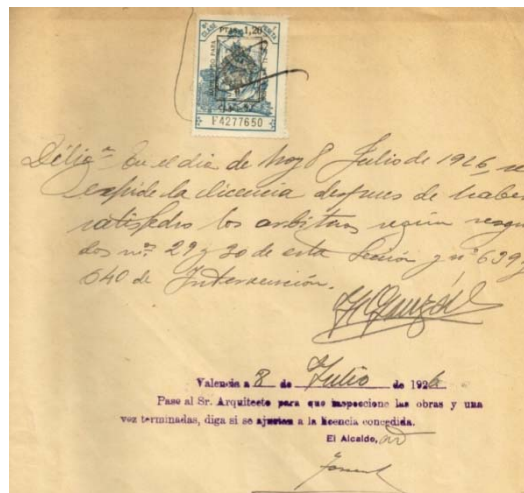 PTAS. 1,20
F4277650
En el dia de hoy 8 Julio de 1926, se
expide la licencia despues de haber
satisfecho los arbitrios según resguar
dos nº 29 y 30 de esta Sección y nº 639 y
640 de Intervención.
Valencia a 8 de Julio de 1926
Pase al Sr. Arquitecto para que inspeccione las obras y una
vez terminadas, diga si se ajustan a la licencia concedida.
El Alcalde,